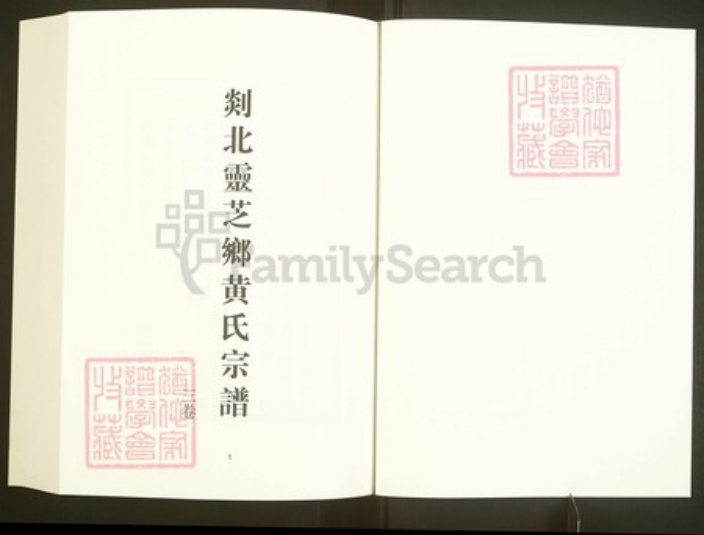 剡北靈芝鄉黄氏宗譜
三卷
1
猶他家
譜學會
收藏
猶他家
譜學會
收藏
FamilySearch